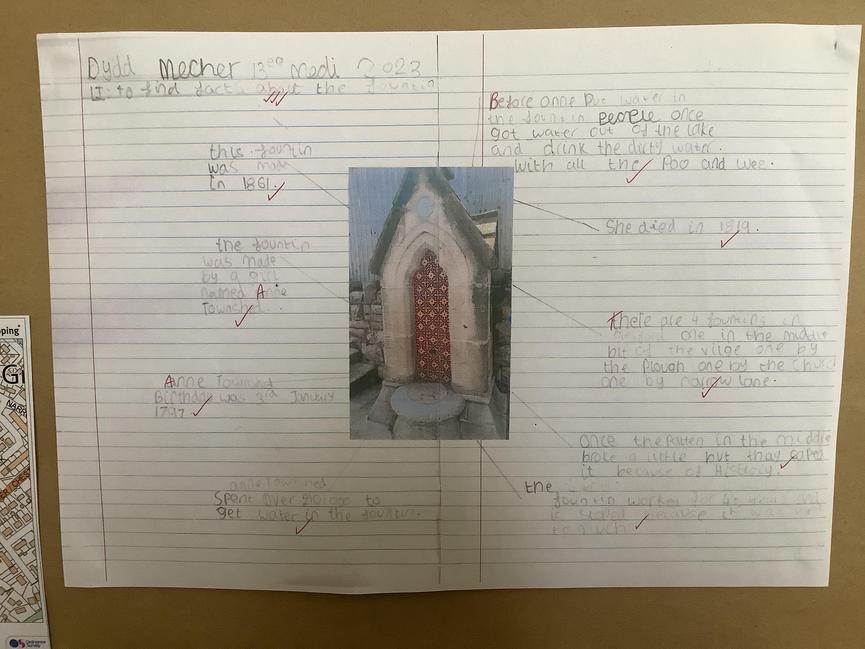 Dydd Mecher 13eg Medi 2023
LI: to find facts about the fountin
this fountin
was made
in 1861.
the fountin
was made
by a girl
named Anne
Townshed.
Anne
Birthday was 3rd January
1797
anne
Spent over
get water in the fountin.
Before anne Put water in
the fountin people once
got water out of the lake
and drink the dirty water.
with all the Poo and wee.
She died in 1819.
there are 4 fountins in
one in the middle
bit of the vilge one by
the plough one by the
one by narrow lane.
once the Patten in the middle
broke a little but thay
it because of History.
the
fountin worked for
because it was
to much
pping
G
Ordnance
Survey